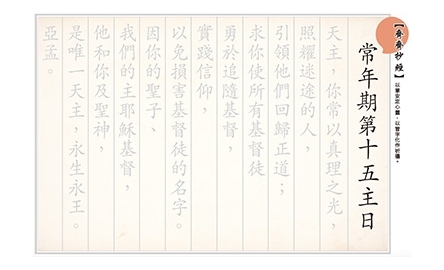 【齊齊抄經】
以筆安定心靈，以習字化作祈禱。
常年期第十五主日
天主，你常以真理之光，
照耀迷途的人，
引領他們回歸正道；
求你使所有基督徒
勇於追隨基督，
實踐信仰，
以免損害基督徒的名字。
因你的聖子、
我們的主耶穌基督，
他和你及聖神，
是唯一天主，永生永王。
亞孟。